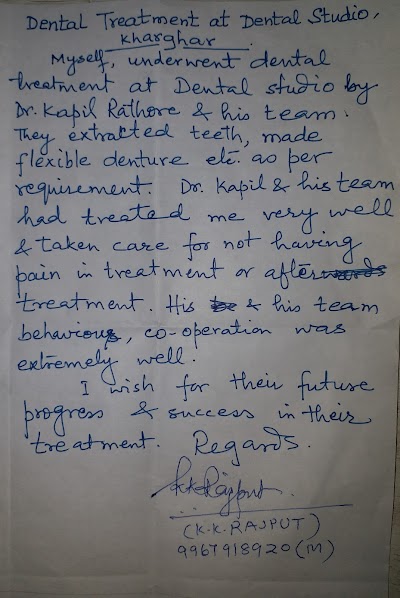 Dental Treatment at Dental Studio,
Kharghar.
Myself, underwent dental
treatment at Dental studio by
Dr. Kapil Rathore & his team.
They extracted teeth, made
flexible denture etc. as per
requirement. Dr. Kapil & his team
had treated me very well
& taken care for not having
pain in treatment or after
treatment. His & his team
behaviour, co-operation was
extremely well.
I wish for their future
progress & success in their
treatment. Regards.
K.K.Rajput.
(K.K.RAJPUT)
9967918920(M)